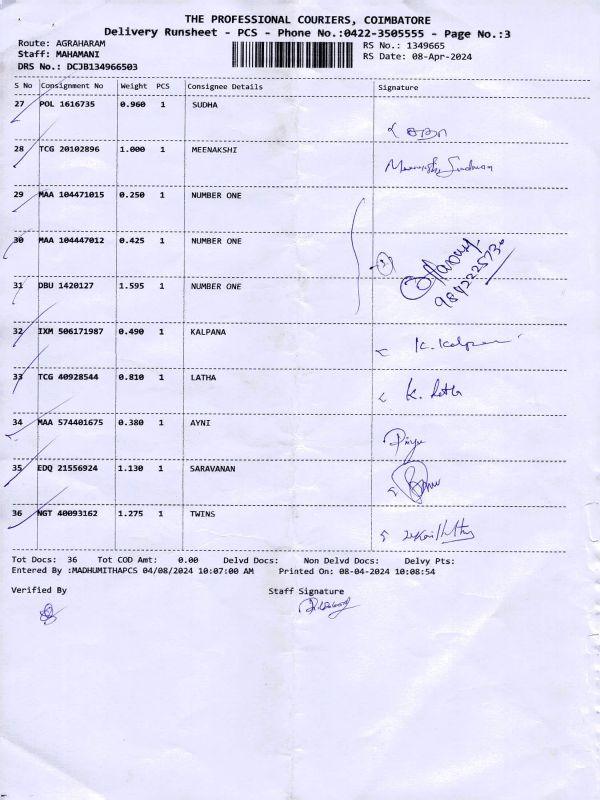 THE PROFESSIONAL COURIERS, COIMBATORE
Delivery Runsheet - PCS - Phone No.:0422-3505555 - Page No.:3
Route: AGRAHARAM RS No.: 1349665
Staff: MAHAMANI RS Date: 08-Apr-2024
DRS No.: DCJB134966503
S No Consignment No Weight PCS Consignee Details Signature
27 POL 1616735 0.960 1 SUDHA
28 TCG 20102896 1.000 1 MEENAKSHI
29 MAA 104471015 0.250 1 NUMBER ONE
30 MAA 104447012 0.425 1 NUMBER ONE
(3)
9842225736
31 DBU 1420127 1.595 1 NUMBER ONE
32 IXM 506171987 0.490 1 KALPANA
K. Kalpana
33 TCG 40928544 0.810 1 LATHA
K. Latha
34 MAA 574401675 0.380 1 AYNI
35 EDQ 21556924 1.130 1 SARAVANAN
36 NGT 40093162 1.275 1 TWINS
Tot Docs: 36 Tot COD Amt: 0.00 Delvd Docs: Non Delvd Docs: Delvy Pts:
Entered By :MADHUMITHAPCS 04/08/2024 10:07:00 AM Printed On: 08-04-2024 10:08:54
Verified By Staff Signature